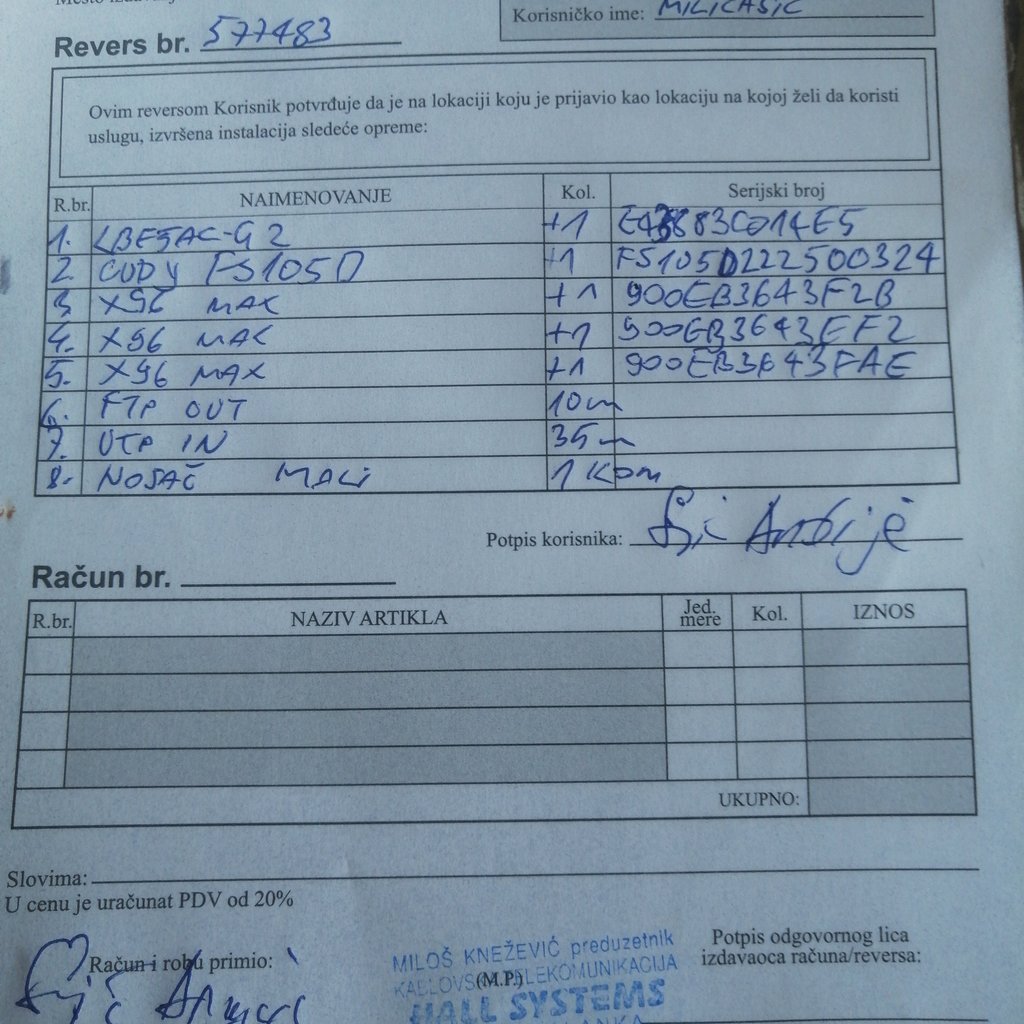 Korisničko ime: MILICASIC
Revers br. 577483
Ovim reversom Korisnik potvrđuje da je na lokaciji koju je prijavio kao lokaciju na kojoj želi da koristi
uslugu, izvršena instalacija sledeće opreme:
R.br. NAIMENOVANJE Kol. Serijski broj
1. LBE5AC-G2 +1
2. CUDY FS105D +1 FS105D222500324
3 X96 MAX +1 900EB3643F2B
4. X96 MAX +1 900EB3643EF2
5. X96 MAX +1 900EB3643FAE
6. FTP OUT 10m
7. UTP IN 35m
8. NOSAČ MALI 1 KOM
Potpis korisnika:
Račun br.
R.br. NAZIV ARTIKLA Jed. mere Kol. IZNOS
UKUPNO:
Slovima:
U cenu je uračunat PDV od 20%
Račun i robu primio:
MILOŠ KNEŽEVIĆ preduzetnik
(M.P.) TELEKOMUNIKACIJA
HALL SYSTEMS
Potpis odgovornog lica
izdavaoca računa/reversa: